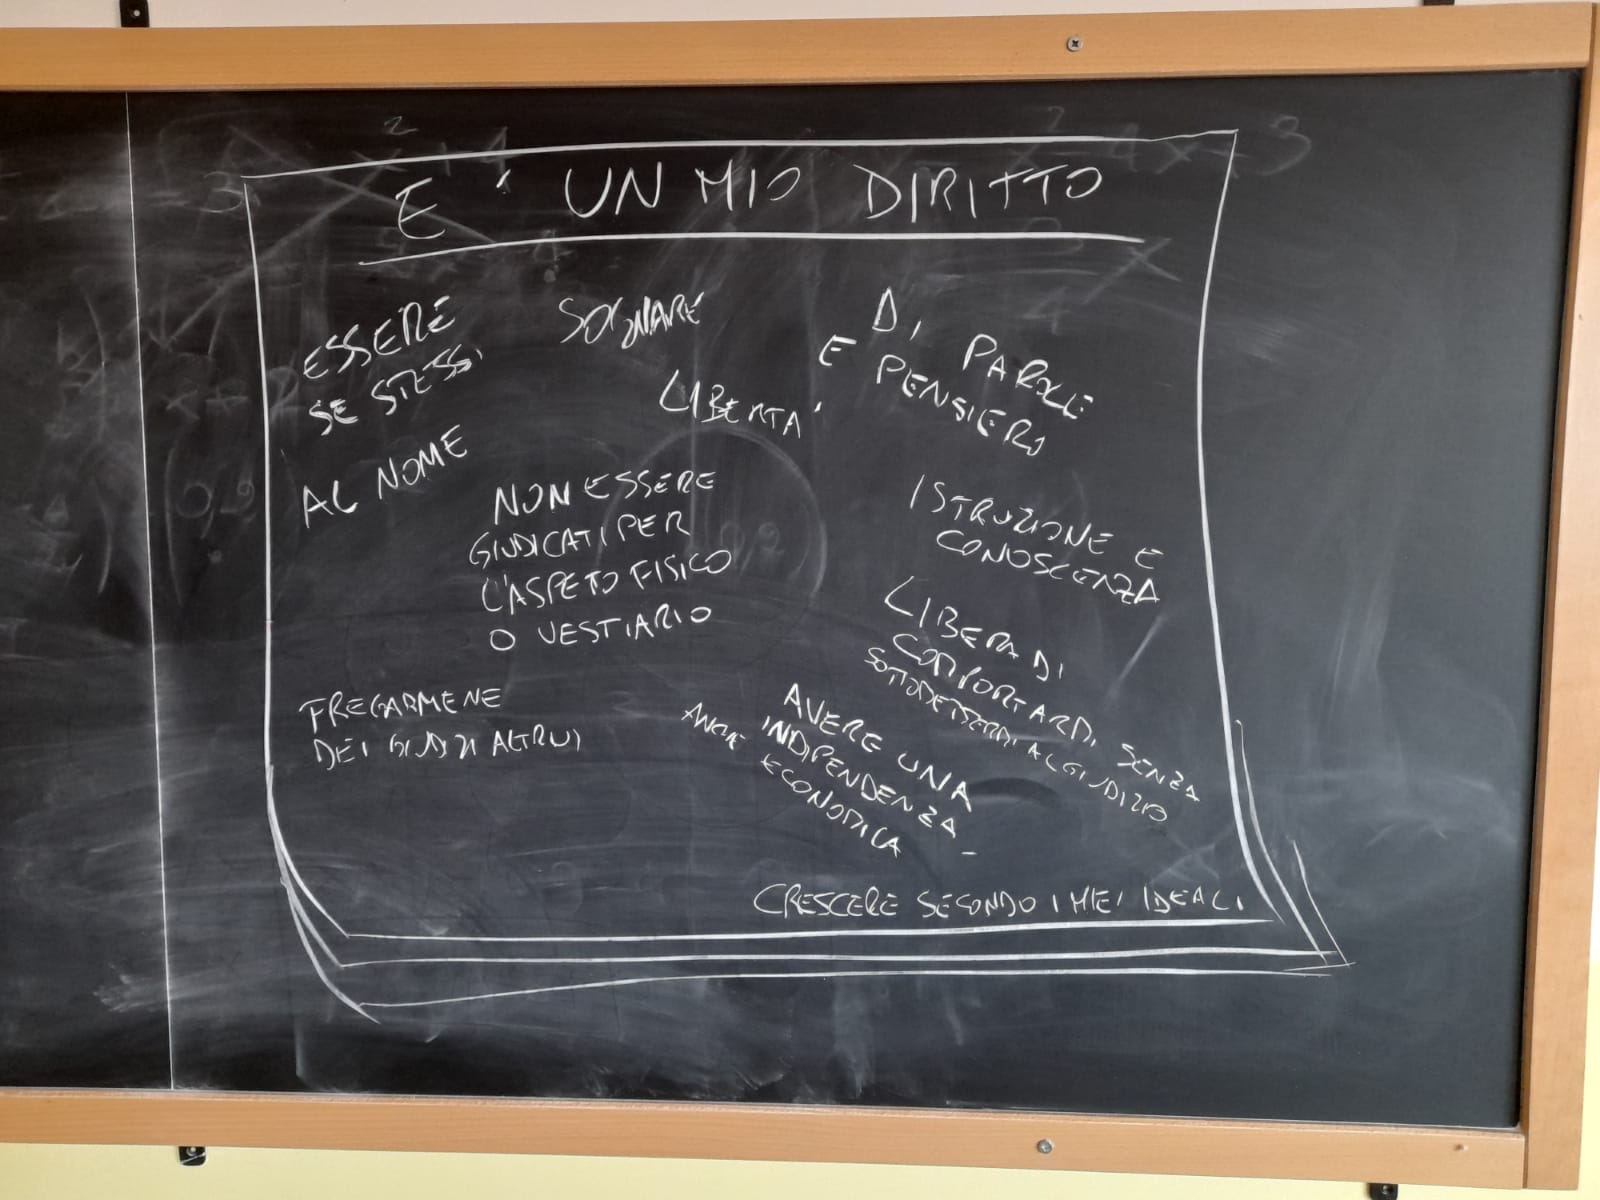 E' UN MIO DIRITTO
ESSERE
SE STESSI
SOGNARE
DI PAROLE
E PENSIERI
LIBERTA'
AL NOME
NON ESSERE
GIUDICATI PER
L'ASPETO FISICO
O VESTIARIO
ISTRUZIONE E
CONOSCENZA
LIBERA DI
COMPORTARDI SENZA
AL GIUDIZIO
FREGARMENE
DEI GIUDIZI ALTRUI
AVERE UNA
INDIPENDENZA
ANCHE ECONOMICA
CRESCERE SECONDO I MIEI IDEALI